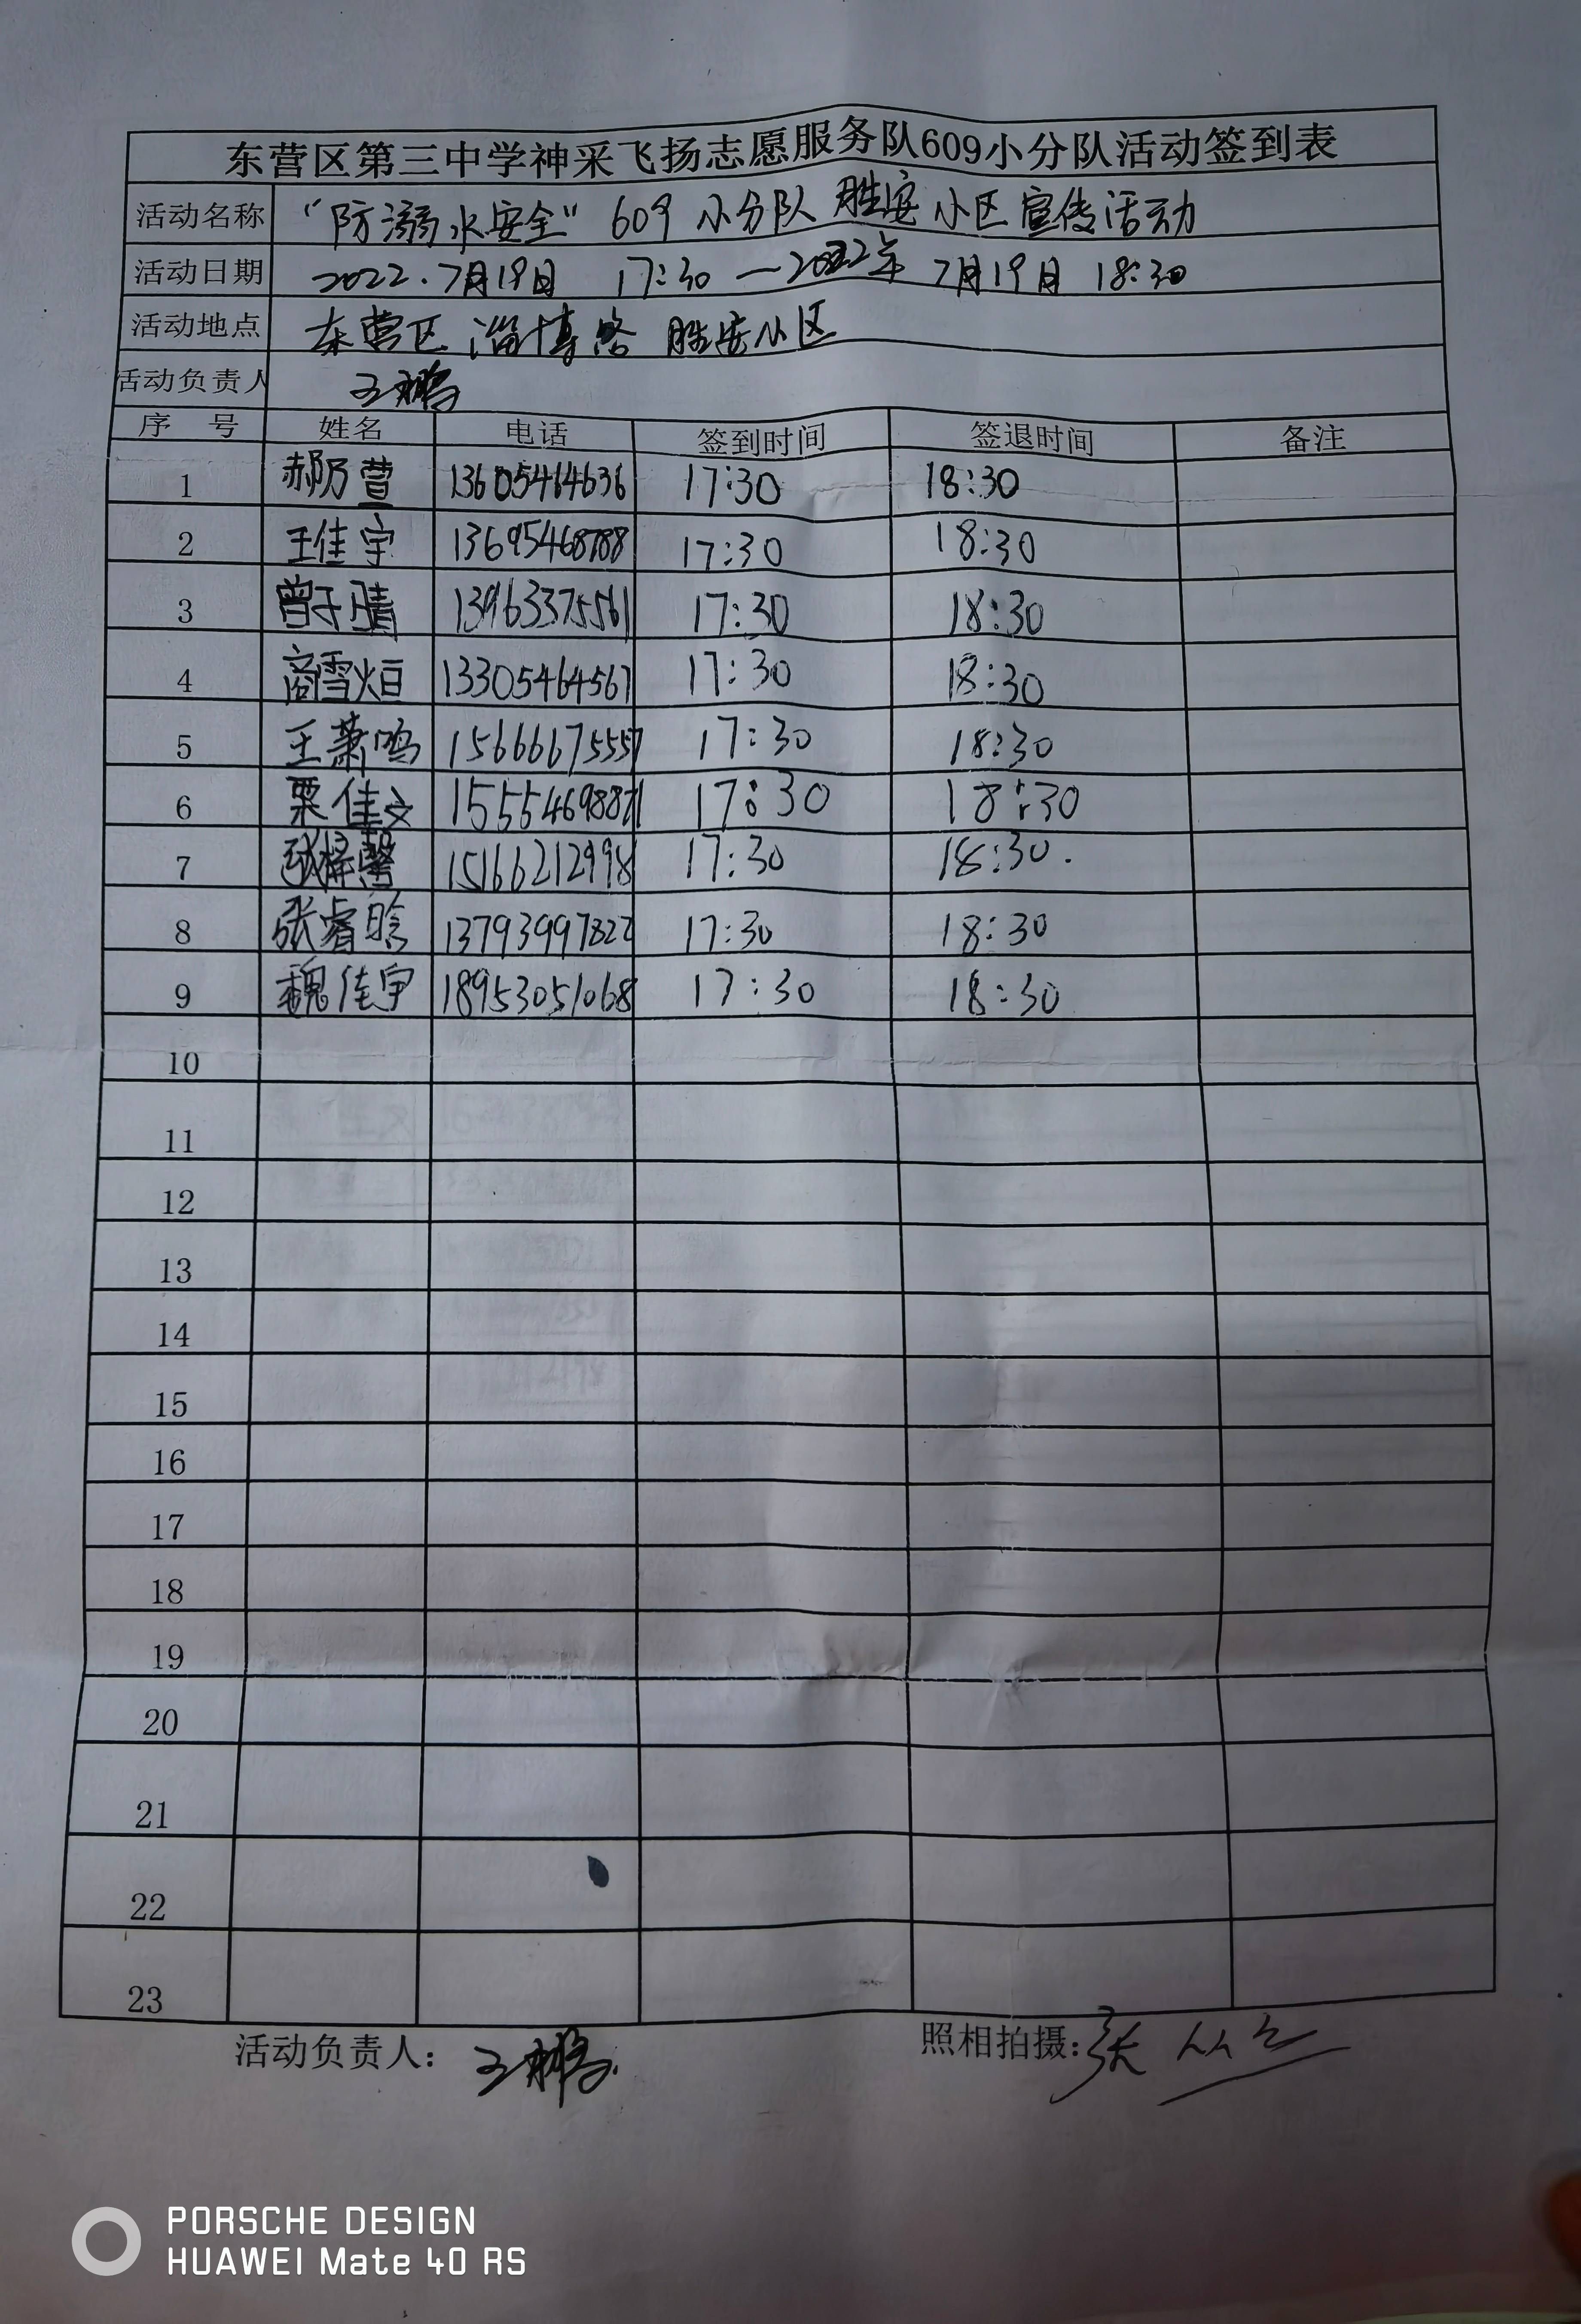 东营区第三中学神采飞扬志愿服务队609小分队活动签到表
活动名称 “防溺水安全” 609 小分队 胜安 小区 宣传活动
活动日期 2022.7月19日 17:30 —2022年 7月19日 18:30
活动地点 东营区 淄博路 胜安小区
活动负责人 王鹏
序 号 姓名 电话 签到时间 签退时间 备注
1 郝乃萱 13605464636 17:30 18:30
2 王佳宇 13695468788 17:30 18:30
3 曾子晴 13963375561 17:30 18:30
4 商雪烜 13305464567 17:30 18:30
5 王萧鸣 15666675557 17:30 18:30
6 栗佳文 15554698871 17:30 18:30
7 张梓馨 15166212998 17:30 18:30.
8 张睿晗 13793997822 17:30 18:30
9 魏佳宇 18953051068 17:30 18:30
10
11
12
13
14
15
16
17
18
19
20
21
22
23
活动负责人: 王鹏 照相拍摄: 张
PORSCHE DESIGN
HUAWEI Mate 40 RS